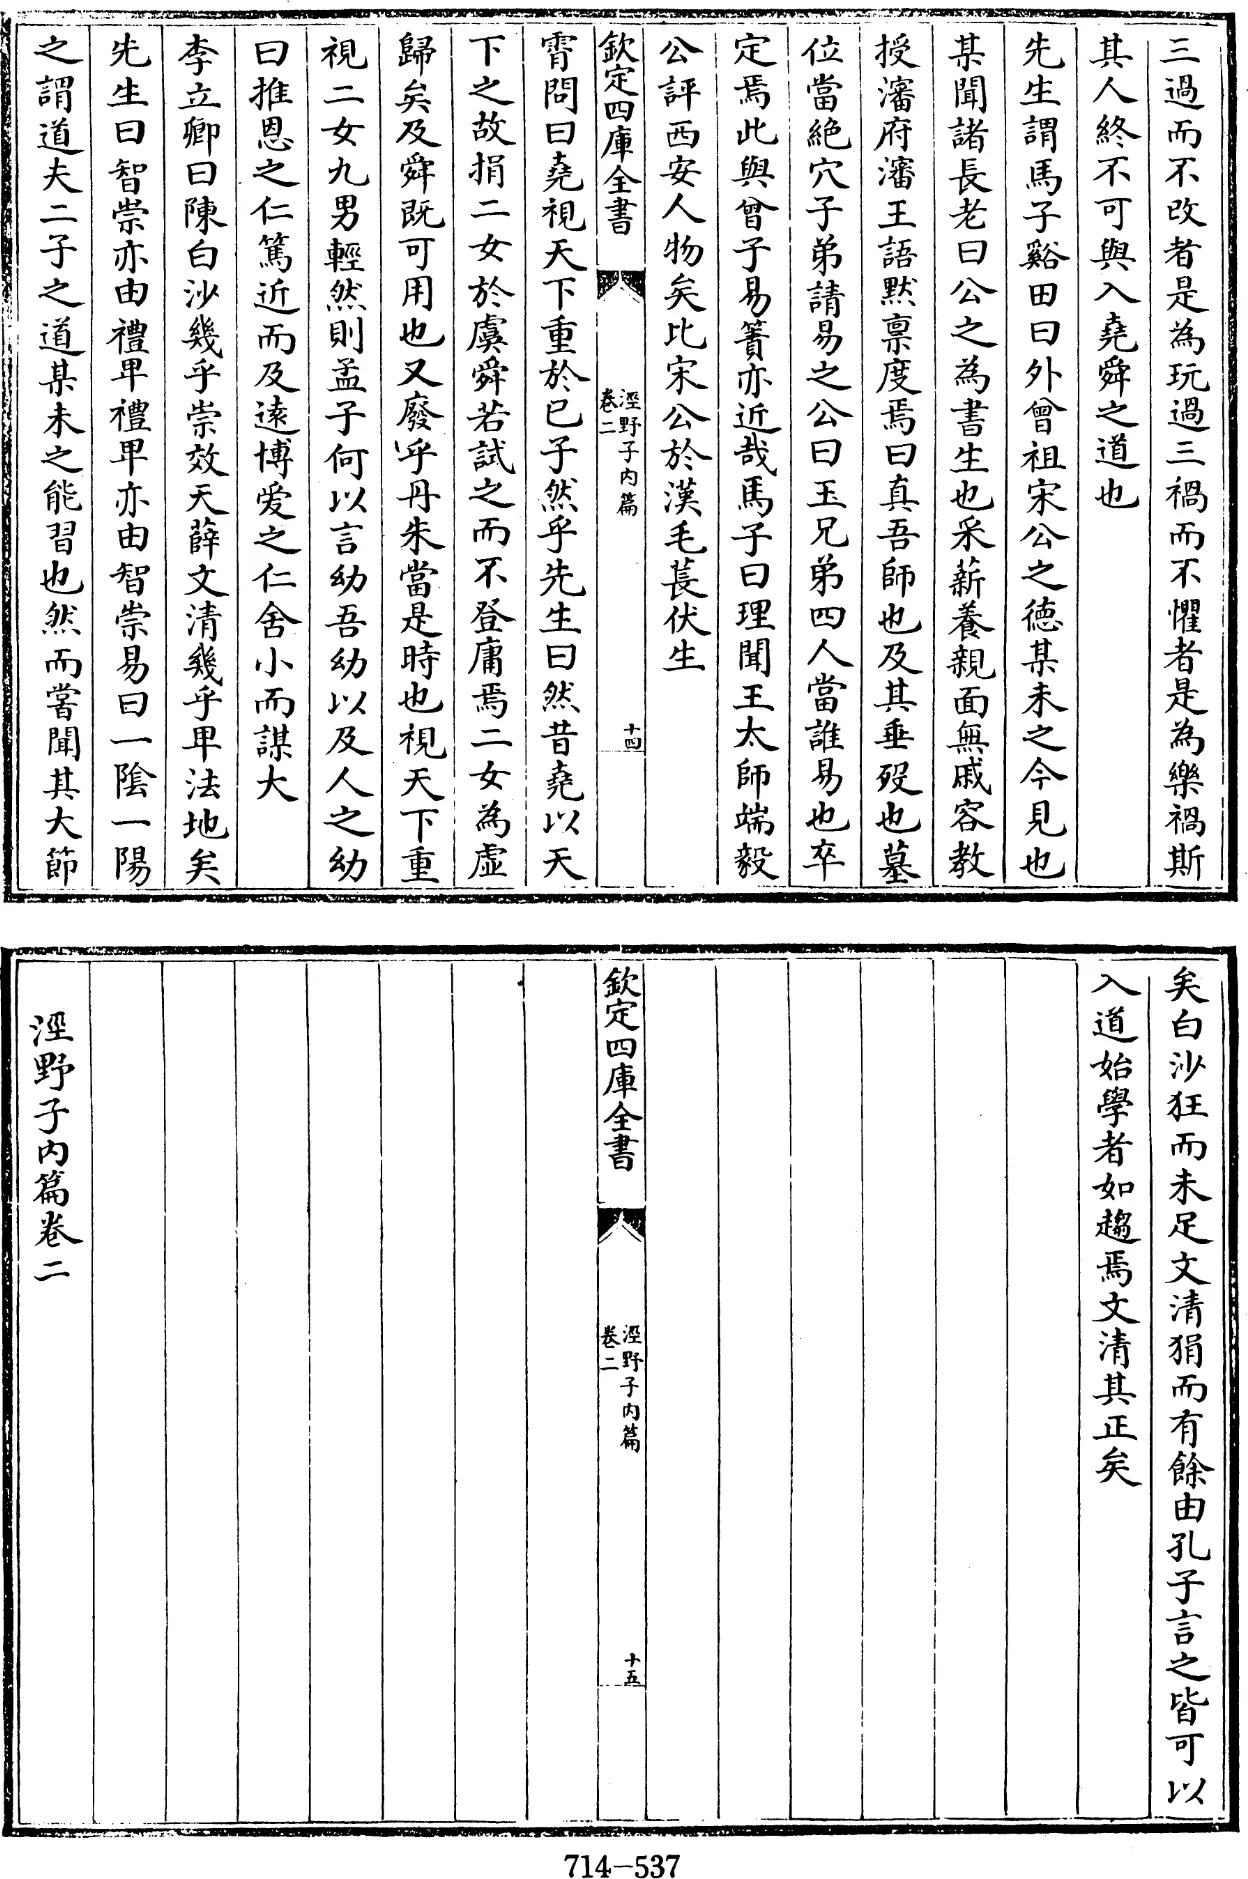 三過而不改者是為玩過三禍而不懼者是為樂禍斯
其人終不可與入堯舜之道也
先生謂馬子谿田曰外曾祖宋公之德某未之今見也
某聞諸長老曰公之為書生也采薪養親面無戚容教
授瀋府瀋王語默禀度焉曰真吾師也及其垂歿也墓
位當絶穴子弟請易之公曰玉兄弟四人當誰易也卒
定焉此與曾子易簀亦近哉馬子曰理聞王太師端毅
公評西安人物矣比宋公於漢毛萇伏生
欽定四庫全書
涇野子内篇
卷二
十四
霄問曰堯視天下重於已子然乎先生曰然昔堯以天
下之故捐二女於虞舜若試之而不登庸焉二女為虛
歸矣及舜既可用也又廢乎丹朱當是時也視天下重
視二女九男輕然則孟子何以言幼吾幼以及人之幼
曰推恩之仁篤近而及逺博爱之仁舍小而謀大
李立卿曰陳白沙幾乎崇效天薛文清幾乎卑法地矣
先生曰智崇亦由禮卑禮卑亦由智崇易曰一陰一陽
之謂道夫二子之道某未之能習也然而嘗聞其大節
矣白沙狂而未足文清狷而有餘由孔子言之皆可以
入道始學者如趨焉文清其正矣
欽定四庫全書
涇野子内篇
卷二
十五
涇野子内篇卷二
714-537